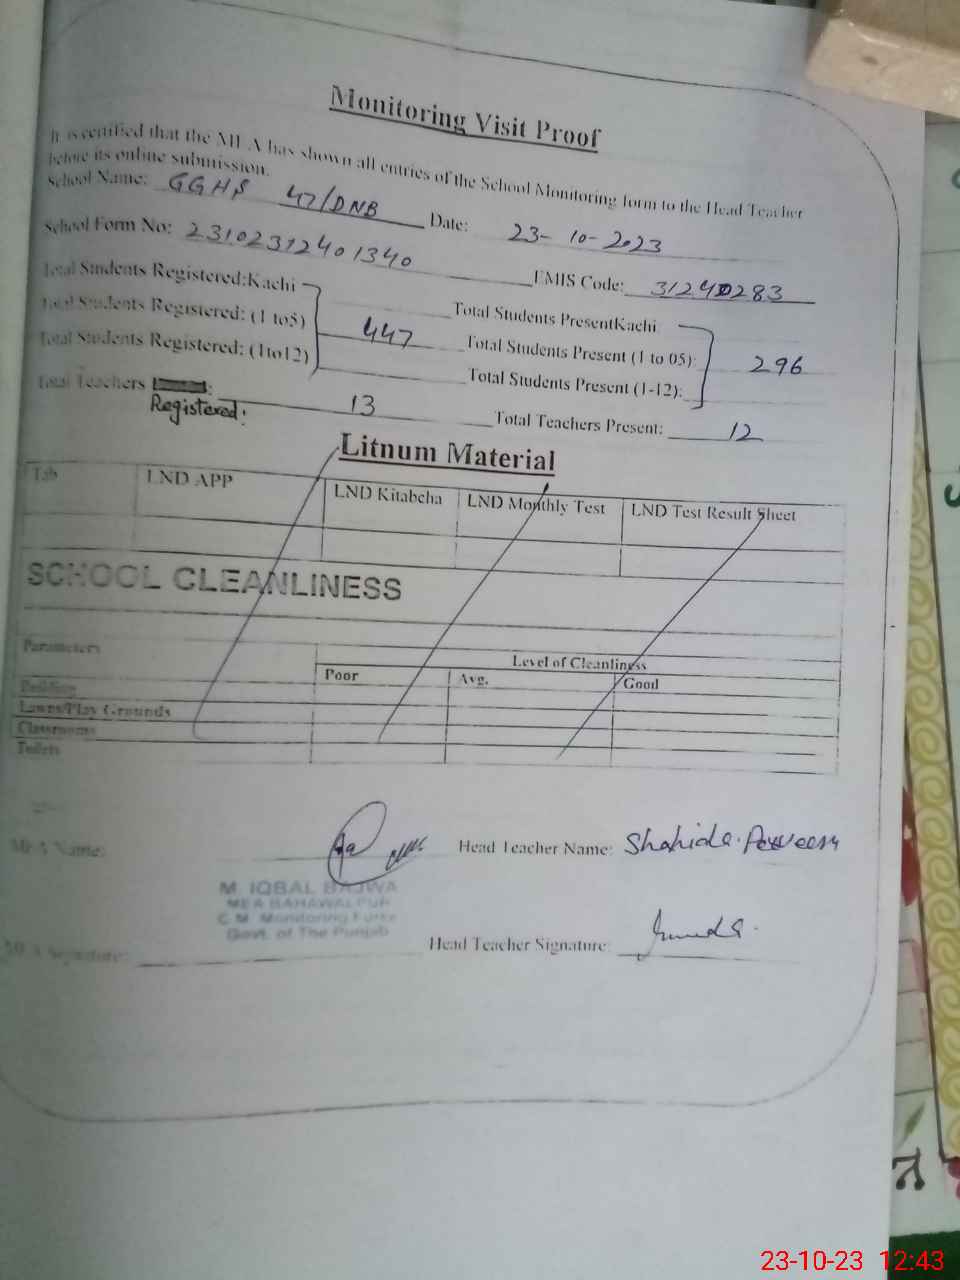 Monitoring Visit Proof
It is certified that the MEA has shown all entries of the School Monitoring form to the Head Teacher
before its online submission.
School Name: GGHS 47/DNB Date: 23-10-2023
School Form No: 2310231240 1340 EMIS Code: 31240283
Total Students Registered:Kachi Total Students PresentKachi:
Total Students Registered: (1 to5) 447 Total Students Present (1 to 05): 296
Total Students Registered: (1to12) Total Students Present (1-12):
Total Teachers : 13 Total Teachers Present: 12
Registered:
Litnum Material
Tab LND APP LND Kitabcha LND Monthly Test LND Test Result Sheet
SCHOOL CLEANLINESS
Parameters Level of Cleanliness
Poor Avg. Good
Building
Lawns/Play Grounds
Classrooms
Toilets
MEA Name: Head Teacher Name: Shahida Parveen
M. IQBAL BAJWA
MEA BAHAWALPUR
C.M. Monitoring Force
Govt. of The Punjab
MEA Signature: Head Teacher Signature:
23-10-23 12:43